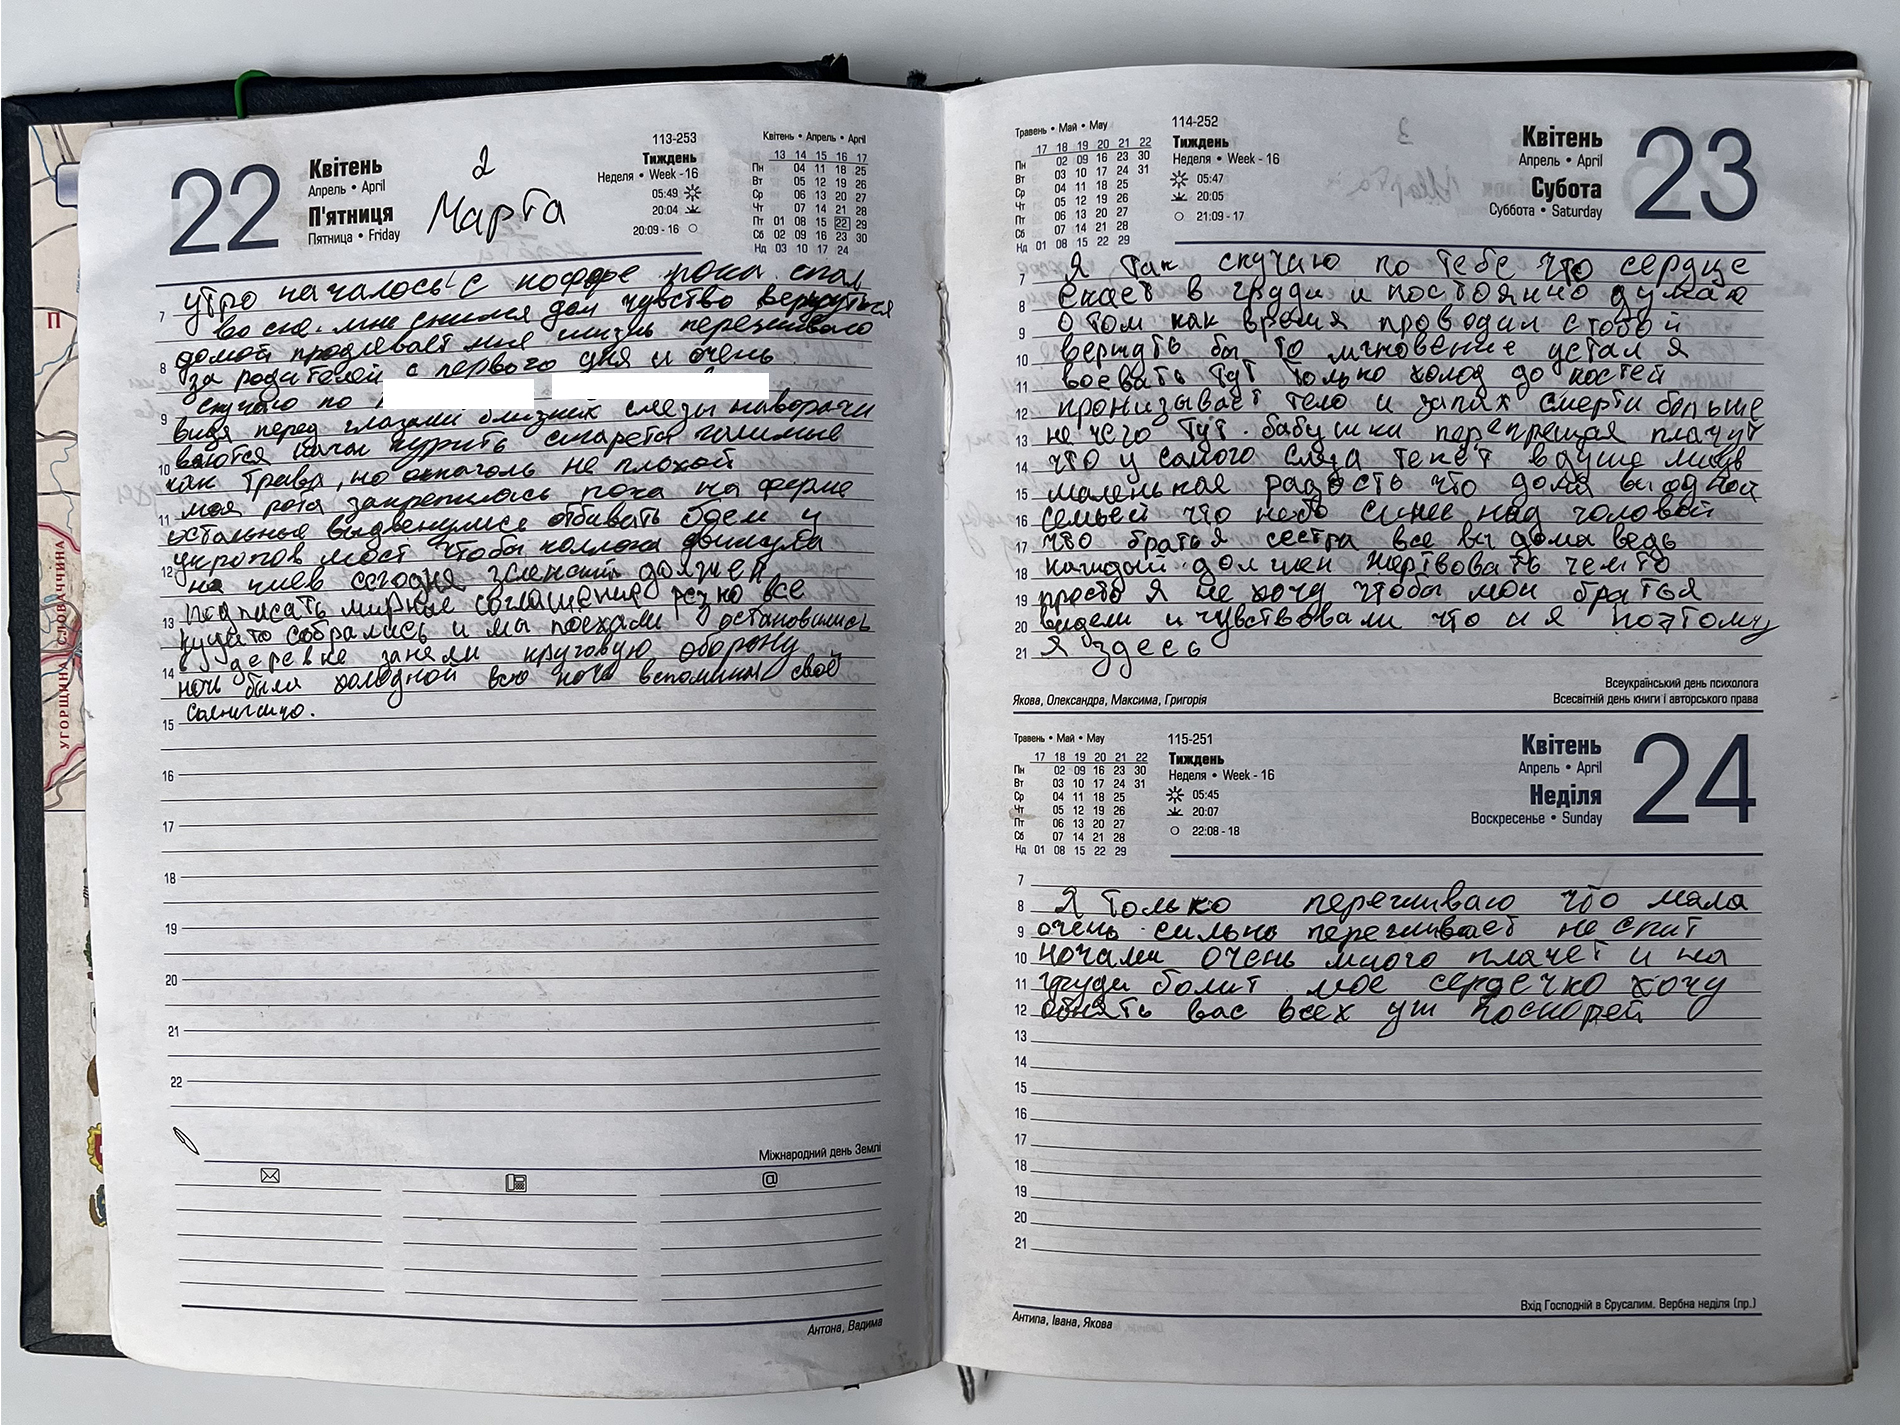 22
Квітень
Апрель • April
П'ятниця
Пятница • Friday
2
Марта
113-253
Тиждень
Неделя • Week -16
05:49
20:04
20:09 - 16
Квітень • Апрель • April
13 14 15 16 17
Пн 04 11 18 25
Вт 05 12 19 26
Ср 06 13 20 27
Чт 07 14 21 28
Пт 01 08 15 22 29
Сб 02 09 16 23 30
Нд 03 10 17 24
утро началось с коффе пока спал
7 во сне мне снился дом чувство вернуться
домой продлевает мне жизнь переживаю
8 за родителей с первого дня и очень
скучаю по
9 видя перед глазами близких слезы наворачи
ваются начал курить сигареты галимые
10 как трава, но алкоголь не плохой
моя рота закрепилась пока на ферме
11 остальные выдвенулися отбивать боем у
укропов мост чтобы коллона двинула
12 на киев сегодня зеленский должен
подписать мирное соглашение резко все
13 куда то собрались и мы поехали остановились
в деревне заняли круговую оборону
14 ночь была холодной всю ночь вспоминал своё
солнышко.
15
16
17
18
19
20
21
22
Міжнародний день Землі
@
Антона, Вадима
П
УГОРЩИНА СЛОВАЧЧИНА
Травень • Май • May
17 18 19 20 21 22
Пн 02 09 16 23 30
Вт 03 10 17 24 31
Ср 04 11 18 25
Чт 05 12 19 26
Пт 06 13 20 27
Сб 07 14 21 28
Нд 01 08 15 22 29
114-252
Тиждень
Неделя • Week - 16
05:47
20:05
21:09 - 17
Квітень
Апрель • April
Субота
Суббота • Saturday
23
7 Я так скучаю по тебе что сердце
8 екает в груди и постоянно думаю
9 о том как время проводил с тобой
10 вернуть бы то мгновение устал я
11 воевать тут только холод до костей
12 пронизывает тело и запах смерти больше
13 не чего тут. бабушки перекрещая плачут
14 что у самого слеза течёт в душе лишь
15 маленькая радость что дома вы одной
16 семьей что небо синее над головой
17 что братья сестра все вы дома ведь
18 каждый должен жертвовать чемто
19 просто я не хочу чтобы мои братья
20 видели и чувствовали что и я поэтому
21 я здесь
Всеукраїнський день психолога
Якова, Олександра, Максима, Григорія
Всесвітній день книги і авторського права
Травень • Май • May
17 18 19 20 21 22
Пн 02 09 16 23 30
Вт 03 10 17 24 31
Ср 04 11 18 25
Чт 05 12 19 26
Пт 06 13 20 27
Сб 07 14 21 28
Нд 01 08 15 22 29
115-251
Тиждень
Неделя • Week - 16
05:45
20:07
22:08 - 18
Квітень
Апрель • April
Неділя
Воскресенье • Sunday
24
7
8 Я только переживаю что мама
9 очень сильно переживает не спит
10 ночами очень много плачет и на
11 груди болит мое сердечко хочу
12 обнять вас всех уж поскорей
13
14
15
16
17
18
19
20
21
Вхід Господній в Єрусалим. Вербна неділя (пр.)
Антипа, Івана, Якова